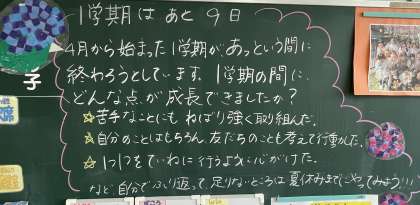 1学期は あと 9日
4月から始まった1学期が、あっという間に
終わろうとしています。1学期の間に、
どんな点が成長できましたか？
☆苦手なことにもねばり強く取り組んだ。
☆自分のことはもちろん、友だちのことも考えて行動した。
☆1つ1つをていねいに行うように心がけた。
など、自分でふり返って、足りないところは夏休みまでにやってみよう!!
子